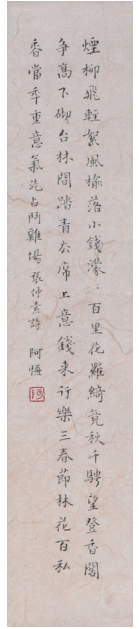 煙柳飛輕絮風榆落小錢濛〻百里花羅綺竟秋千騁望登香閣
争高下砌台林間踏青去席上意錢来行樂三春節林花百和
香當年重意氣先占鬥雞場 張仲素詩 阿